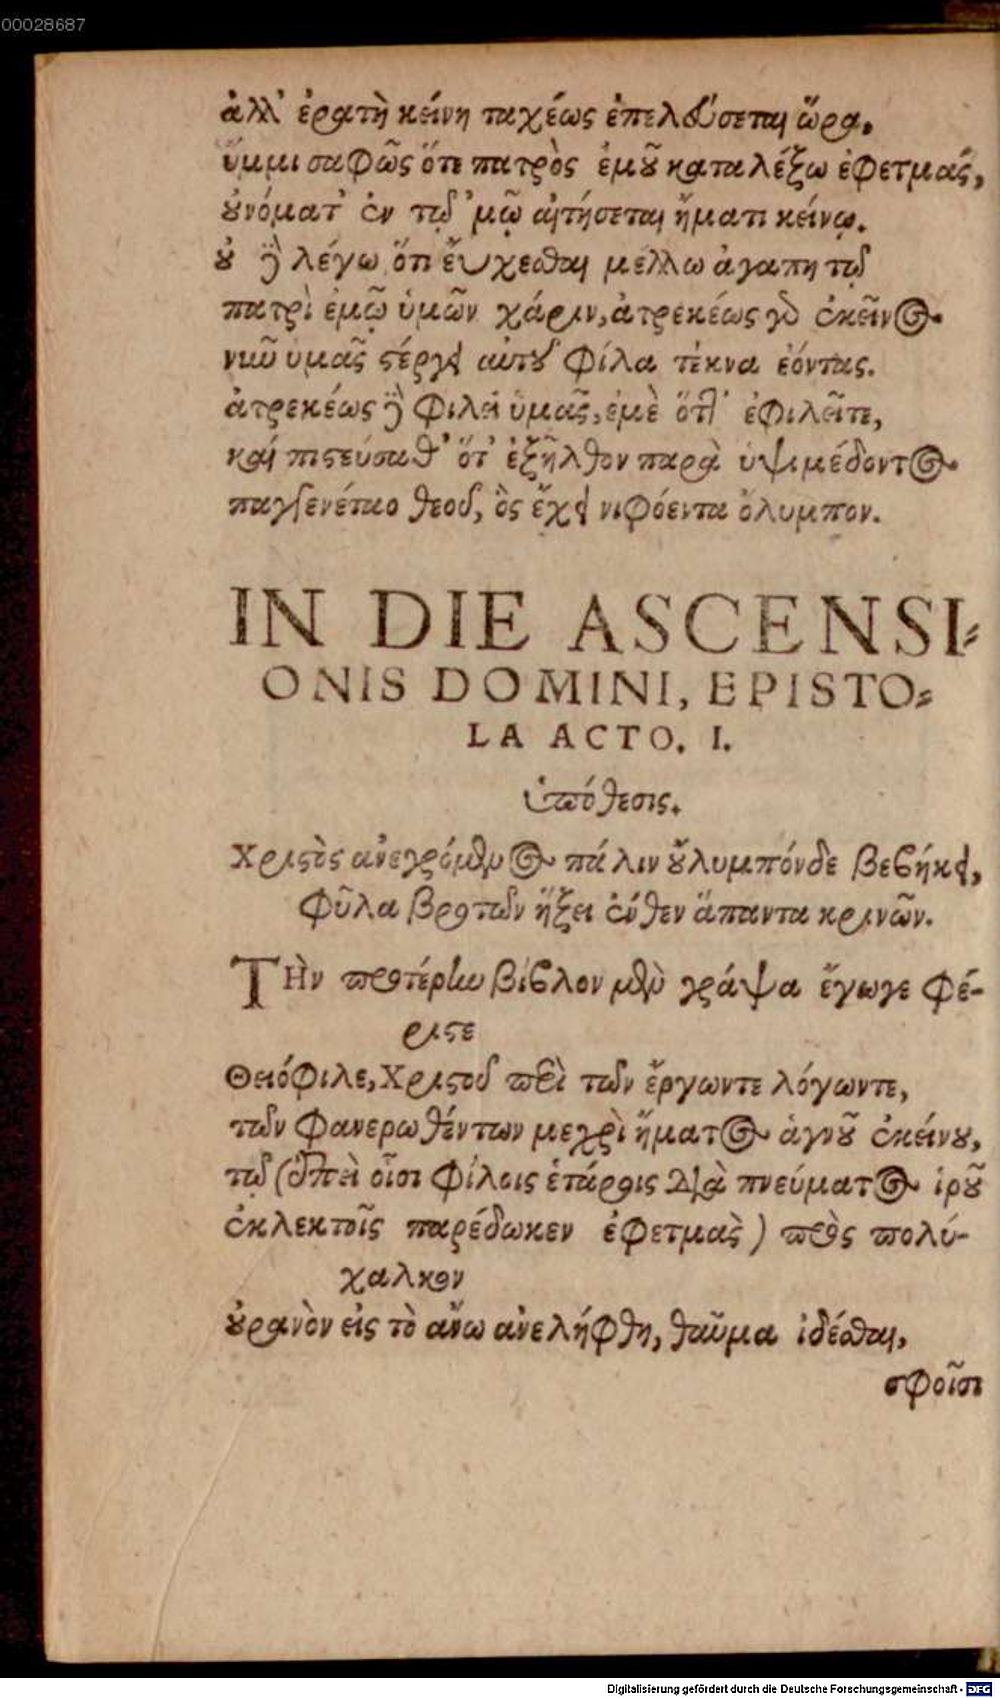 00028687
ἀλλ' ἐρατὴ κείνη ταχέως ἐπελεύσεται ὥρα.
ὔμμι σαφῶς ὅτε πατρὸς ἐμοῦ καταλέξω ἐφετμάς,
οὐνόματ' ἐν τῷ 'μῷ αἰτήσεται ἤματι κείνῳ.
οὐ δὲ λέγω ὅτι εὔχεσθαι μέλλω ἀγαπητῷ
πατρὶ ἐμῷ ὑμῶν χάριν, ἀτρεκέως γὸ ἐκεῖνος
νιῦ ὑμᾶς στέργει αὐτοῦ φίλα τέκνα ἐόντας.
ἀτρεκέως δὲ φιλεῖ ὑμᾶς, ἐμὲ ὅτι ἐφιλεῖτε,
καὶ πιστεύσαθ' ὅτ' ἐξῆλθον παρὰ ὑψιμέδοντος
παγγενέταο θεοῦ, ὃς ἔχει νιφόεντα ὄλυμπον.
IN DIE ASCENSI-
ONIS DOMINI, EPISTO-
LA ACTO. I.
ὑπόθεσις.
Χριστὸς ἀνεγρόμενος πάλιν οὔλυμπόνδε βεβήκει,
Φῦλα βροτῶν ἥξει ἔνθεν ἅπαντα κρινῶν.
ΤΗν προτέρην βίβλον μὲν γράψα ἔγωγε φέ-
ριστε
Θειόφιλε, Χριστοῦ περὶ τῶν ἔργωντε λόγωντε,
τῶν φανερωθέντων μεχρὶ ἤματος ἁγνοῦ ἐκείνου,
τῷ (ἐπεὶ οἷσι φίλοις ἑτάροις διὰ πνεύματος ἱροῦ
ἐκλεκτοῖς παρέδωκεν ἐφετμὰς) πρὸς πολύ-
χαλκον
οὐρανὸν εἰς τὸ ἄνω ἀνελήφθη, θαῦμα ἰδέσθαι,
σφοῖσι
Digitalisierung gefördert durch die Deutsche Forschungsgemeinschaft - DFG